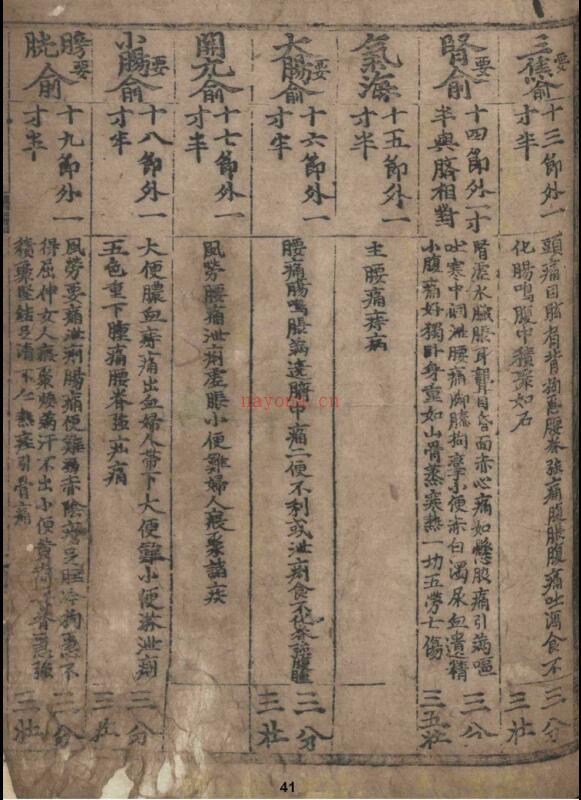 要
三焦俞
十三節外一
寸半
頭痛目眩肩背拘急腰脊強痛腹脹腹痛吐瀉食不
化腸鳴腹中積聚如石
三分
三壯
要
腎俞
十四節外一寸
半與臍相對
腎虛水臟脹耳聾目昏面赤心痛如懸股痛引滿嘔
吐寒中洞泄腰痛脚膝拘攣小便赤白濁尿血遺精
小腹痛好獨卧身重如山骨蒸寒熱一切五勞七傷
三分
三五壯
氣海
十五節外一
寸半
主腰痛痔病
要
大腸俞
十六節外一
寸半
腰痛腸鳴脹滿遶臍中痛二便不利或泄痢食不化脊強
三分
三壯
關元俞
十七節外一
寸半
風勞腰痛泄痢虛脹小便難婦人瘕聚諸疾
要
小腸俞
十八節外一
寸半
大便膿血痔痛出血婦人帶下大便難小便淋泄痢
五色重下腫痛腰脊強疝痛
三分
三壯
要
膀胱俞
十九節外一
寸半
風勞要痛泄痢腸痛便難 赤陰瘡足脛冷拘急不
得屈伸女人瘕聚煩滿汗不出小便黃 脊急強
積聚堅結足清不仁熱痙引骨痛
二分
三壯
nayona.cn
41